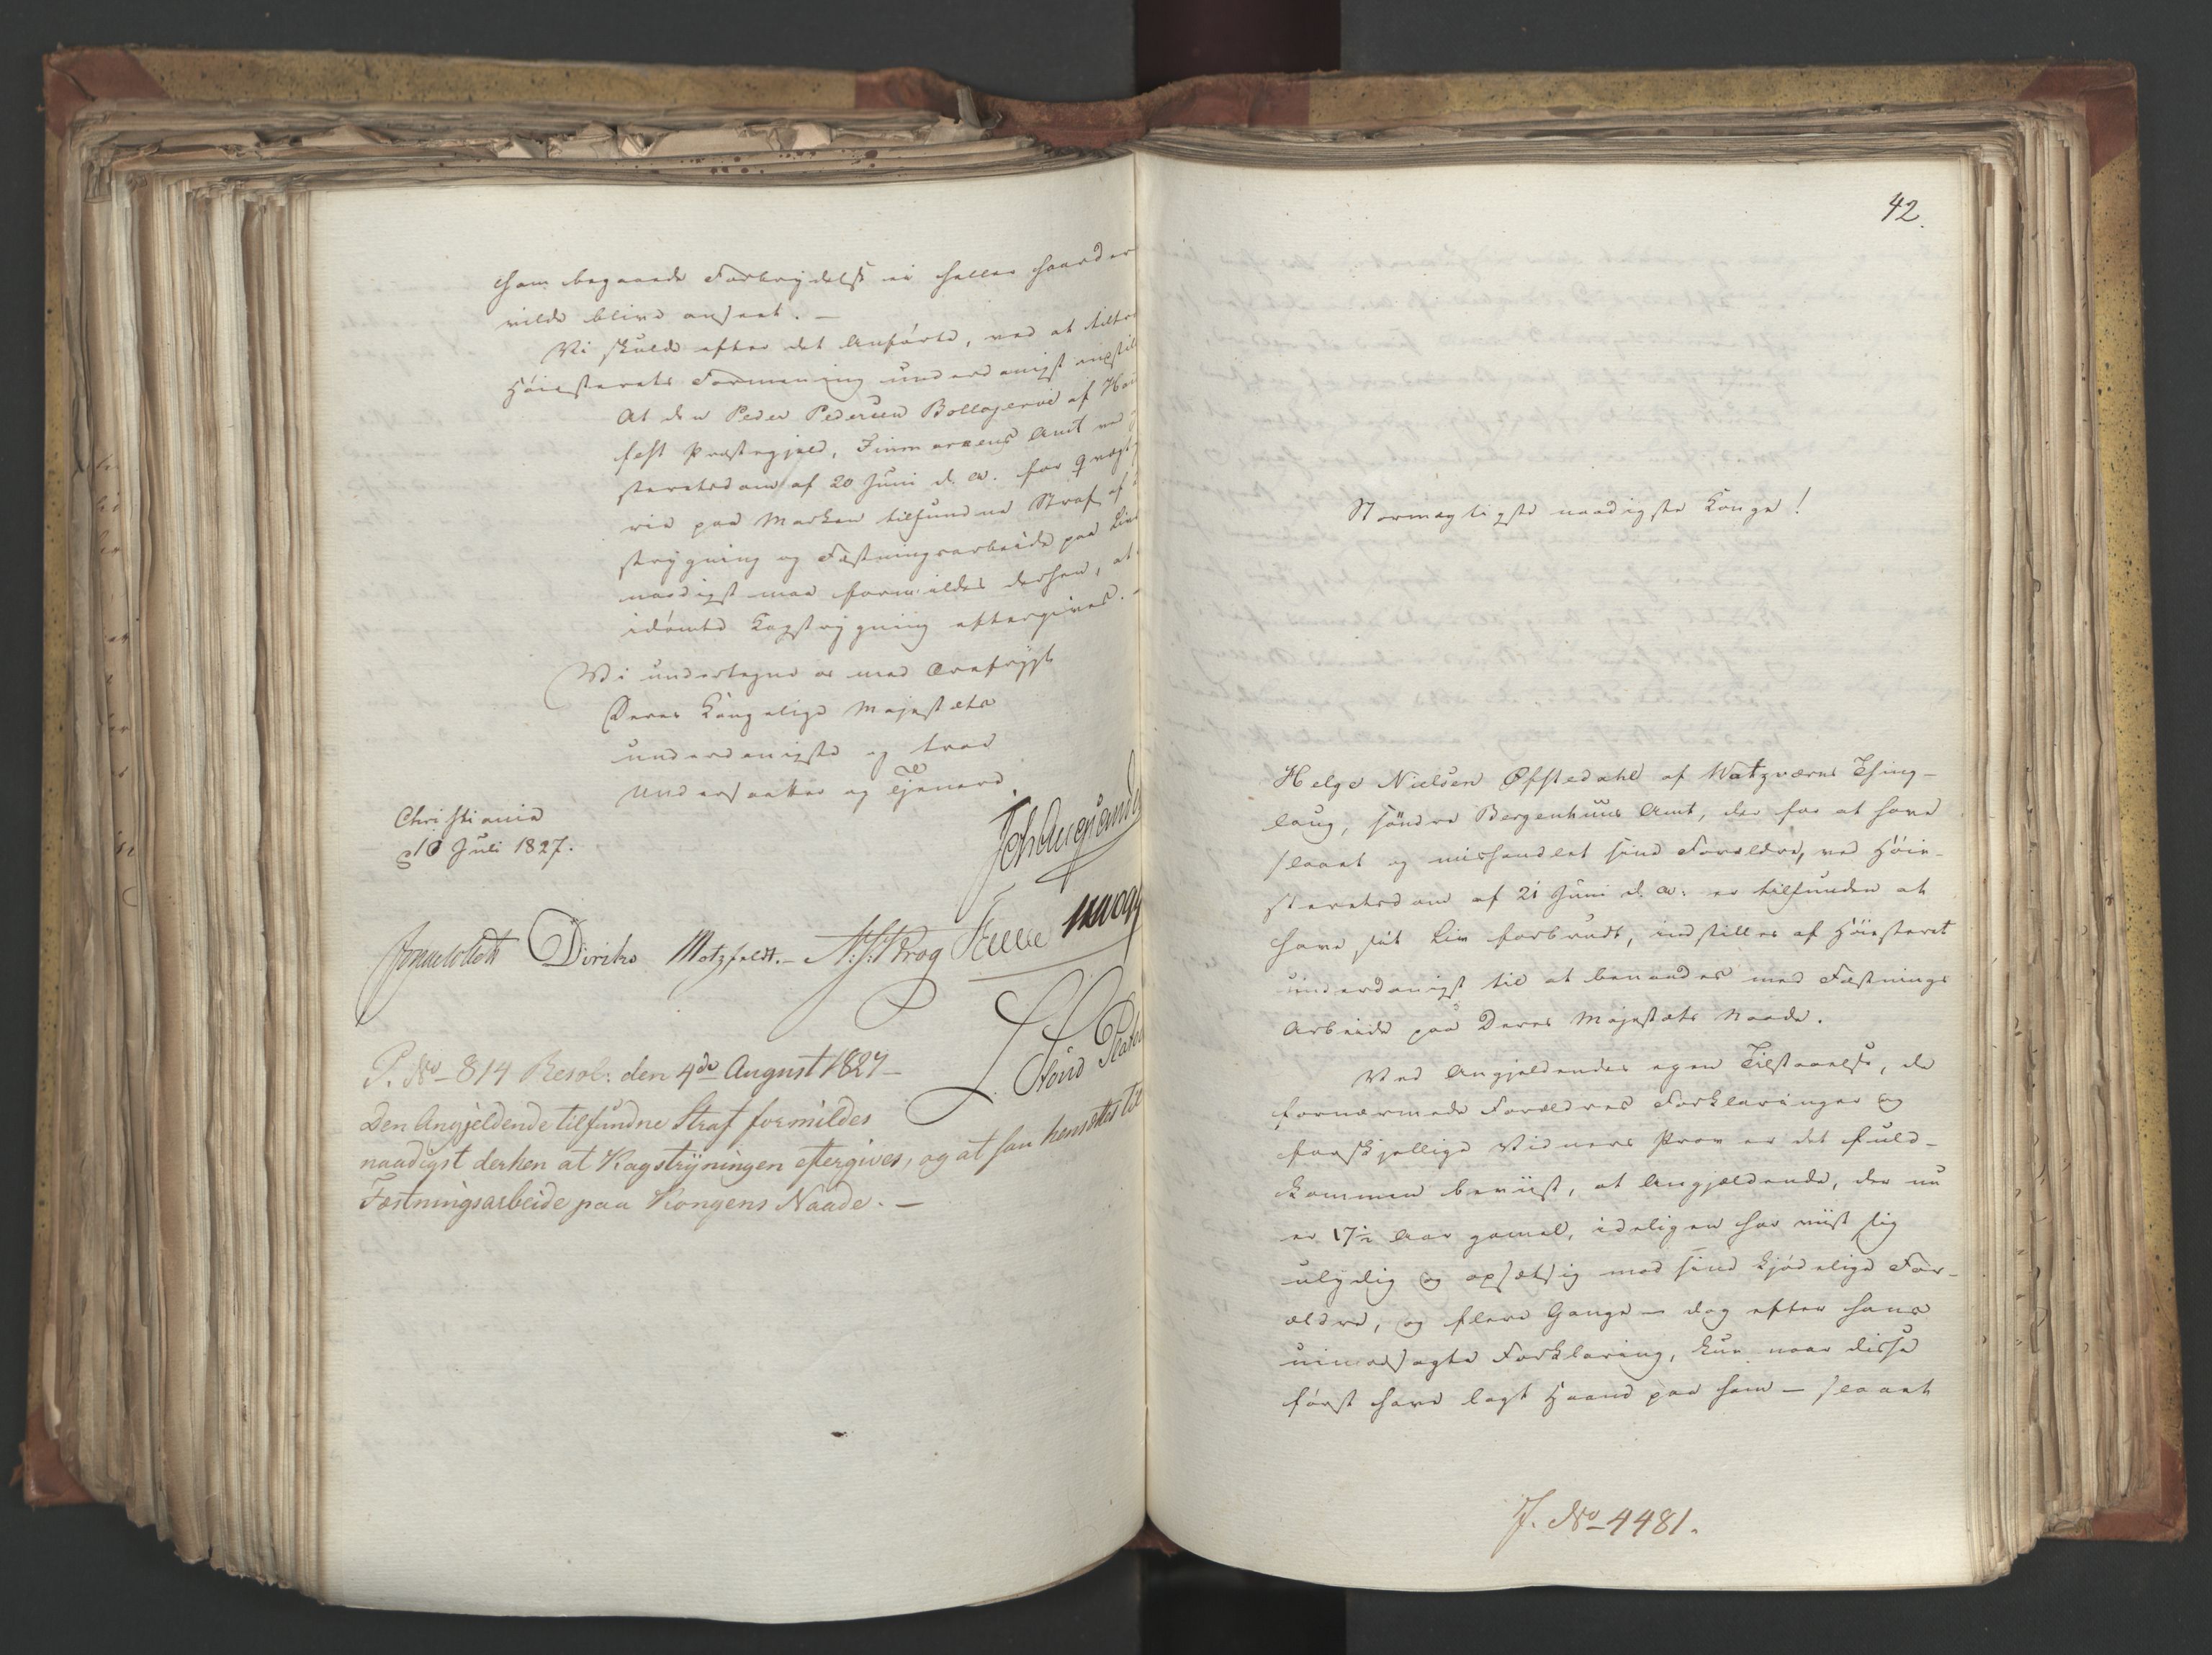 ham begaaede Forbrydelse ei heller haarder
vilde blive anseet. —
Vi skulde efter det Anførte, ved at tiltr
Høiesterets Formening underdanigst indstil
At den Peder Pedersen Bollagervei af Ha
fest Præstegjeld, Finmarkens Amt ved
steretsdom af 20 Juni d. A. for qvægt
rie paa Marken tilfundne Straf af
strygning og Fæstningsarbeide paa Livs
naadigst maa formildes derhen, at
idømte Kagstrygning eftergives. —
Vi undertegne os med Ærefrygt
Deres Kongelige Majestæts
underdanigste og troe
Undersaatter og Tjenere.
Christiania
d 10 Juli 1827.
Diriks Motzfeldt. — Krog
P. No 814 Resol: den 4de August 1827 —
Den Angjeldende tilfundne Straf formildes
naadigst derhen at Kagstrygningen eftergives, og at han hensættes til
Fæstningsarbeide paa Kongens Naade. —
42.
Stormægtigste naadigste Konge!
Helge Nielsen Øfstedahl af Watzværns Thing-
laug, søndre Bergenhuus Amt, der for at have
slaaet og mishandlet sine Forældre, ved Høie-
steretsdom af 21 Juni d. A. er tilfunden at
have sit Liv forbrudt, indstilles af Høiesteret
underdanigst til at benaades med Fæstnings
Arbeide paa Deres Majestæts Naade.
Ved Angjeldendes egen Tilstaaelse, de
fornærmede Forældres Forklaringer og
forskjellige Vidners Prov er det fuld-
kommen beviist, at Angjældende, der nu
er 17½ Aar gamel, ideligen har viist sig
ulydig og opsætsig mod sine kjødelige For-
ældre, og flere Gange — dog efter hans
uimodsagte Forklaring, kun naar disse
først have lagt Haand paa ham — slaaet
J. No 4481.